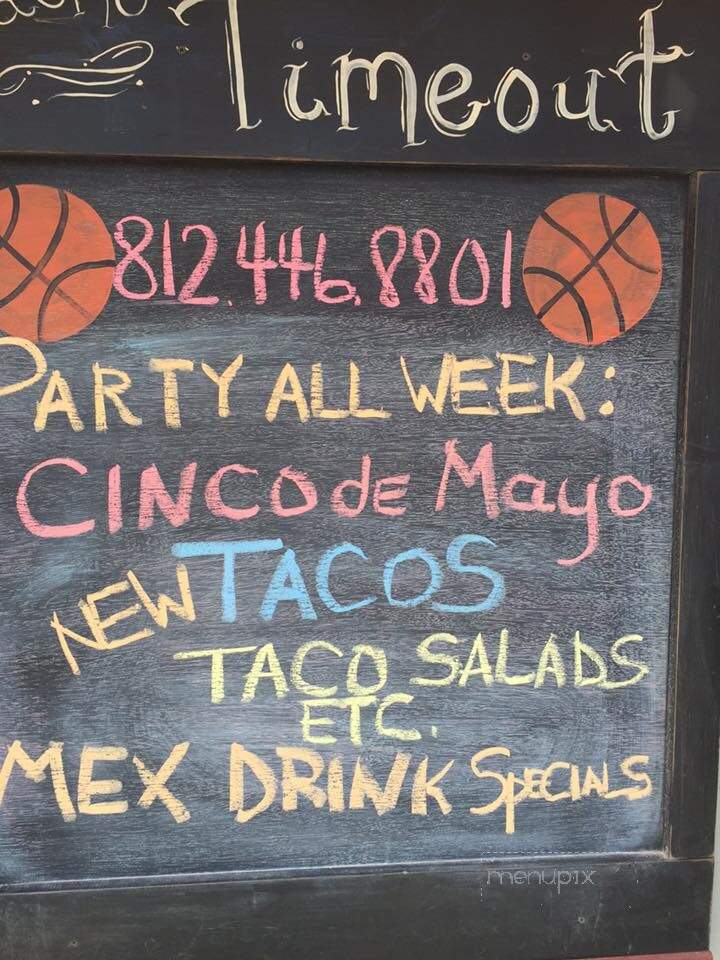 Timeout
812.446.8801
PARTY ALL WEEK:
CINCO de Mayo
NEW TACOS
TACO SALADS
ETC.
MEX DRINK SPECIALS
menupix